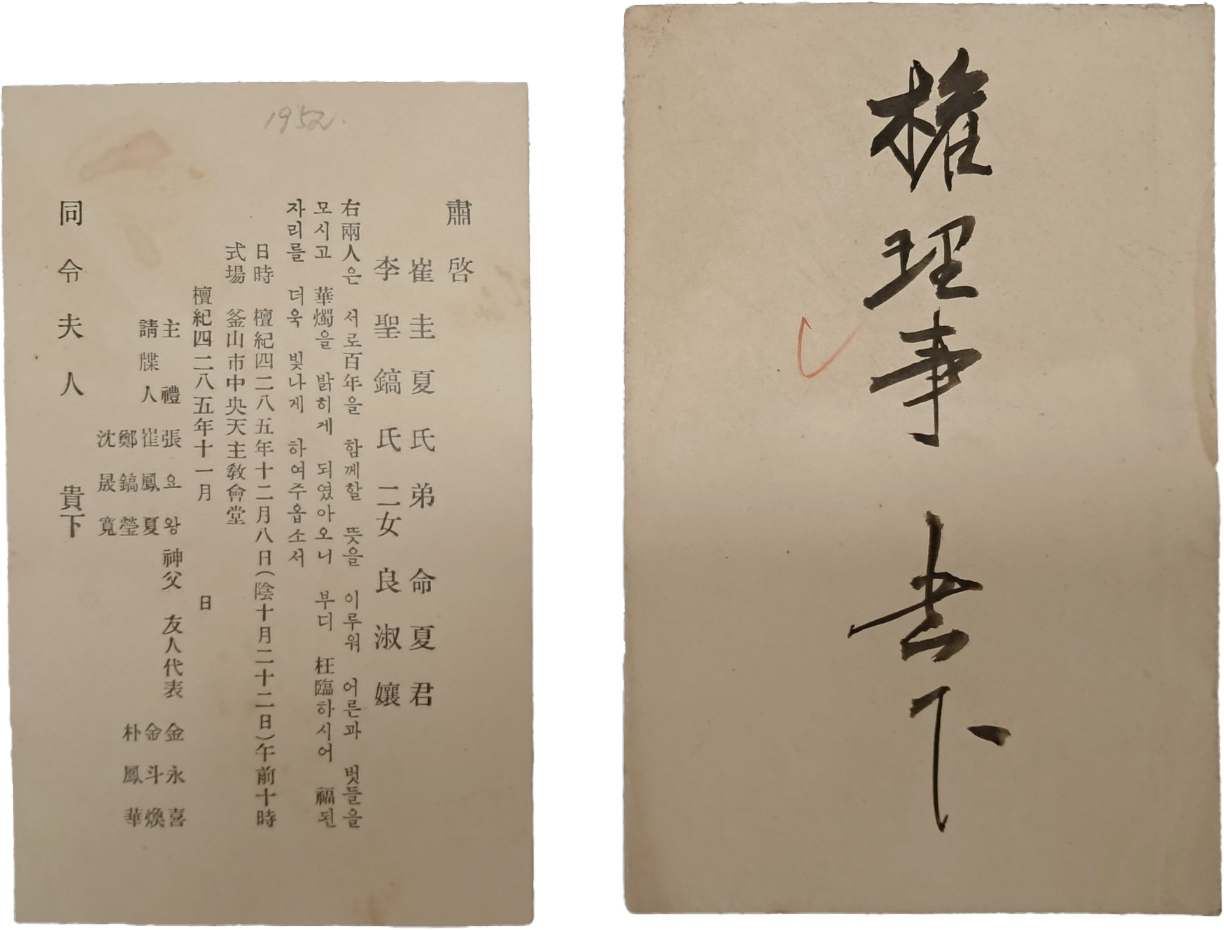 1952.
肅啓
崔圭夏氏弟 命夏君
李聖鎬氏二女 良淑孃
右兩人은 서로百年을 함께할 뜻을 이루워 어른과 벗들을
모시고 華燭을 밝히게 되였아오니 부디 枉臨하시어 福된
자리를 더욱 빛나게 하여주옵소서
日時 檀紀四二八五年十二月八日(陰十月二十二日)午前十時
式場 釜山市中央天主敎會堂
檀紀四二八五年十一月 日
主禮 張요왕神父 友人代表 金永喜
請牒人 崔鳳夏 金斗煥
鄭鎬瑩 朴鳳華
沈晟寬
同令夫人 貴下
權理事 下